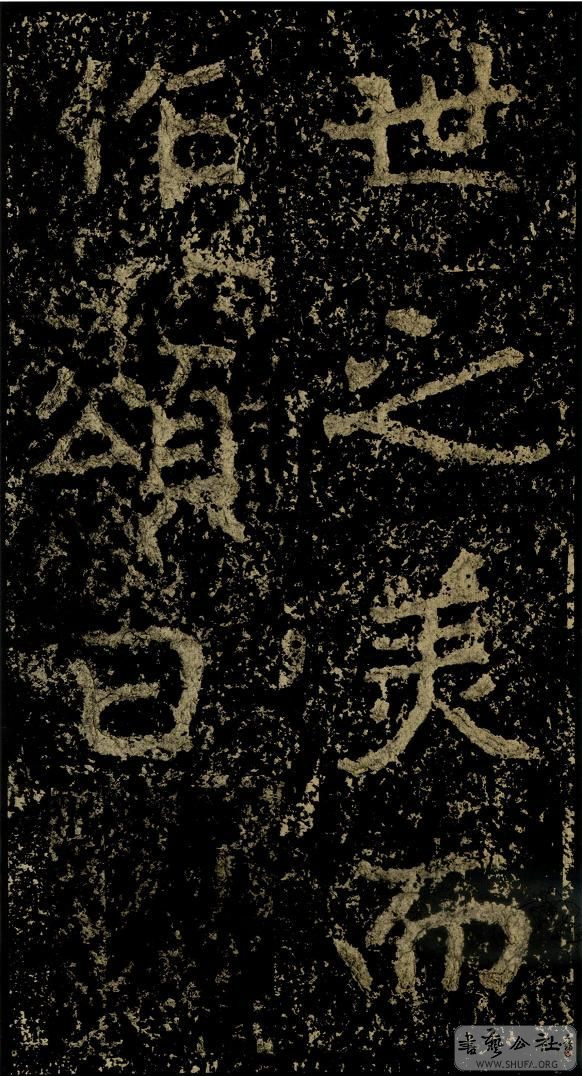 世之美而
作頌曰
書藝公社
WWW.SHUFA.ORG